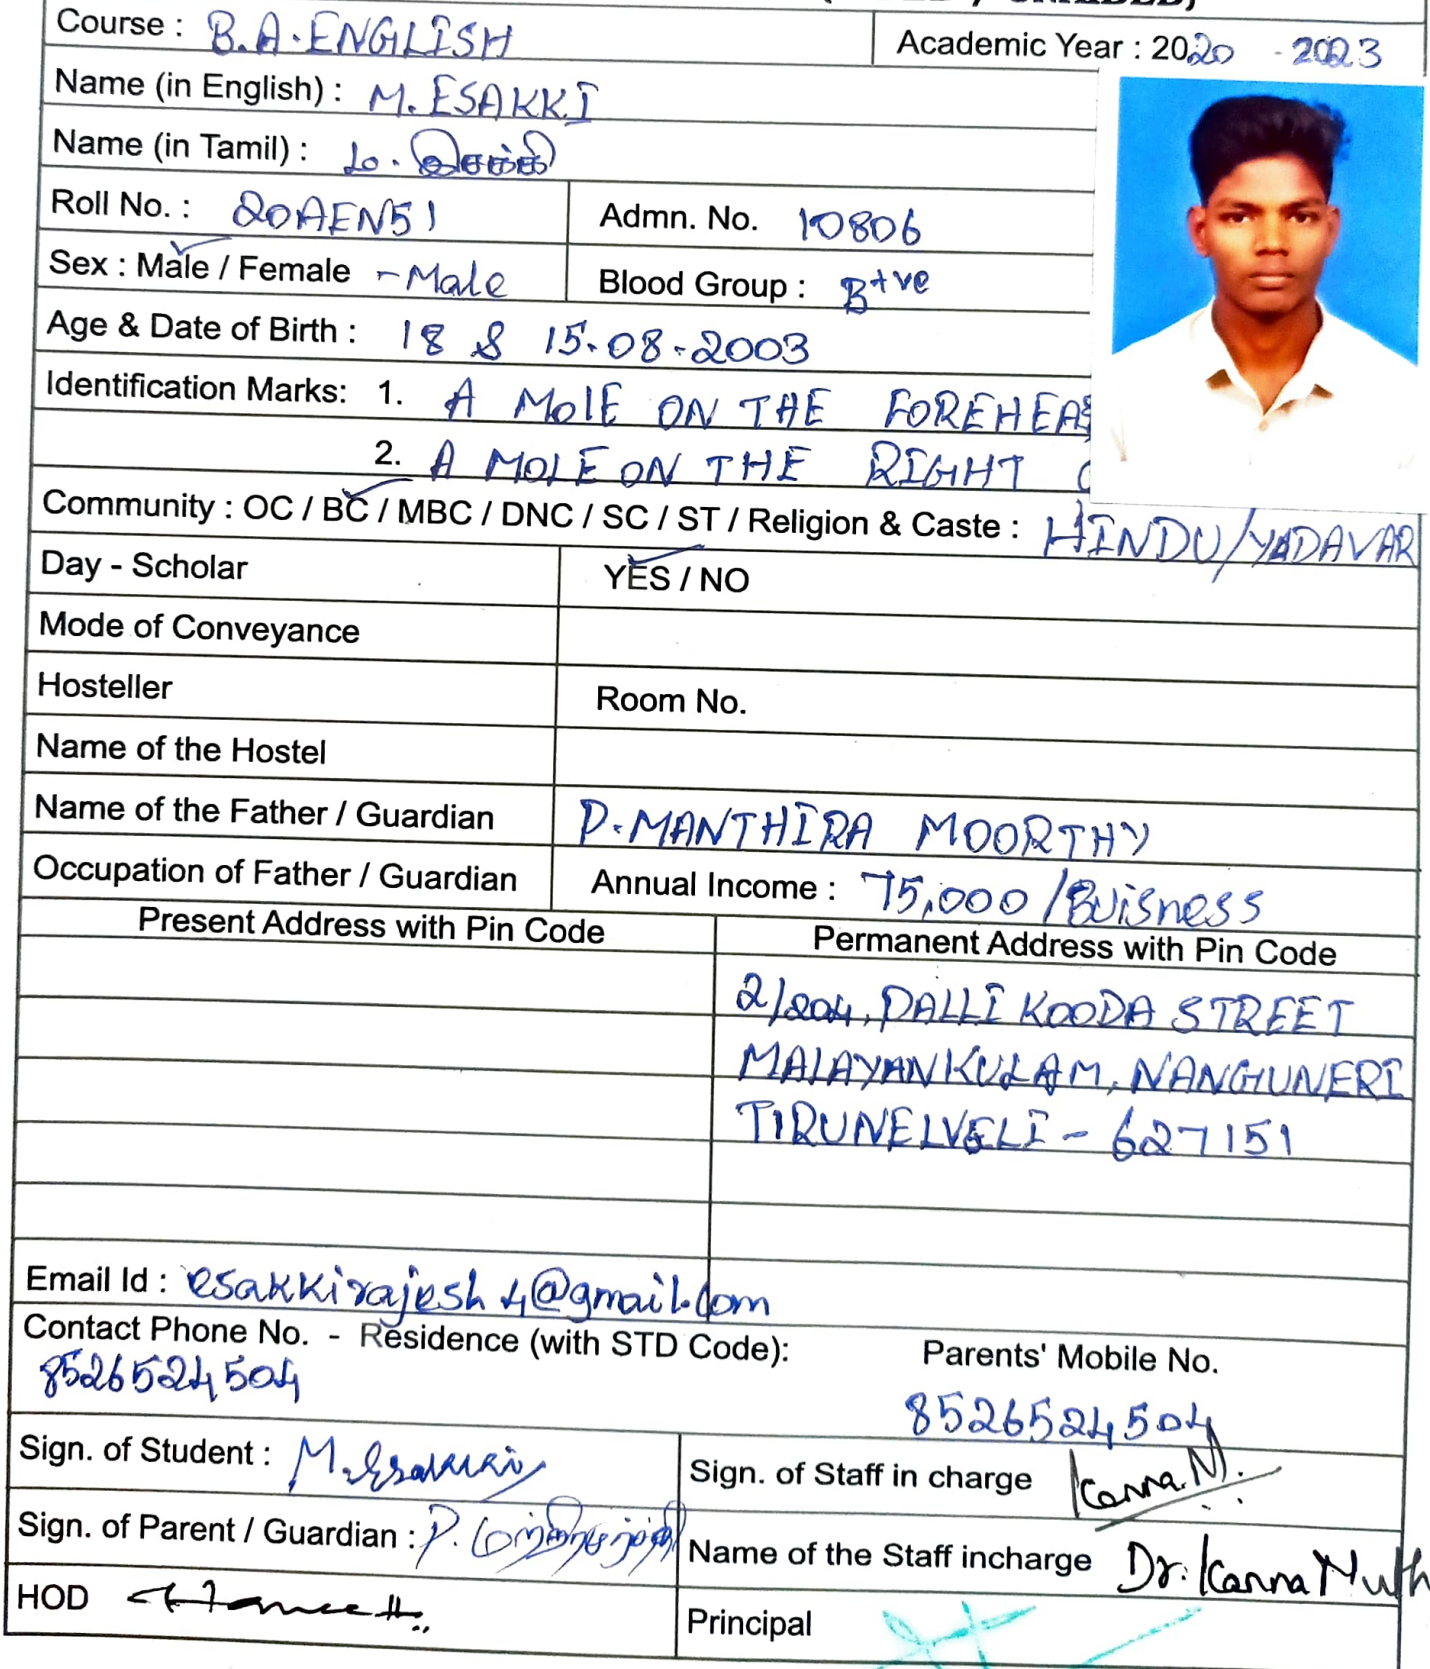 Course : B.A. ENGLISH Academic Year : 2020 - 2023
Name (in English) : M. ESAKKI
Name (in Tamil) : ம. இசக்கி
Roll No. : 20AEN51 Admn. No. 10806
Sex : Male / Female - Male Blood Group : B+ve
Age & Date of Birth : 18 & 15-08-2003
Identification Marks: 1. A MOlE ON THE FOREHEA
2. A MOLE ON THE RIGHT
Community : OC / BC / MBC / DNC / SC / ST / Religion & Caste : HINDU/YADAVAR
Day - Scholar YES / NO
Mode of Conveyance
Hosteller Room No.
Name of the Hostel
Name of the Father / Guardian P. MANTHIRA MOORTHY
Occupation of Father / Guardian Annual Income : 75,000 /Buisness
Present Address with Pin Code Permanent Address with Pin Code
2/204, PALLI KOODA STREET
MALAYANKULAM, NANGUNERI
TIRUNELVELI - 627151
Email Id : esakkirajesh4@gmail.com
Contact Phone No. - Residence (with STD Code): Parents' Mobile No.
8526524504 8526524504
Sign. of Student : M. Esakki Sign. of Staff in charge Kanna. M.
Sign. of Parent / Guardian : P. Name of the Staff incharge Dr. Kanna Muth
HOD Principal